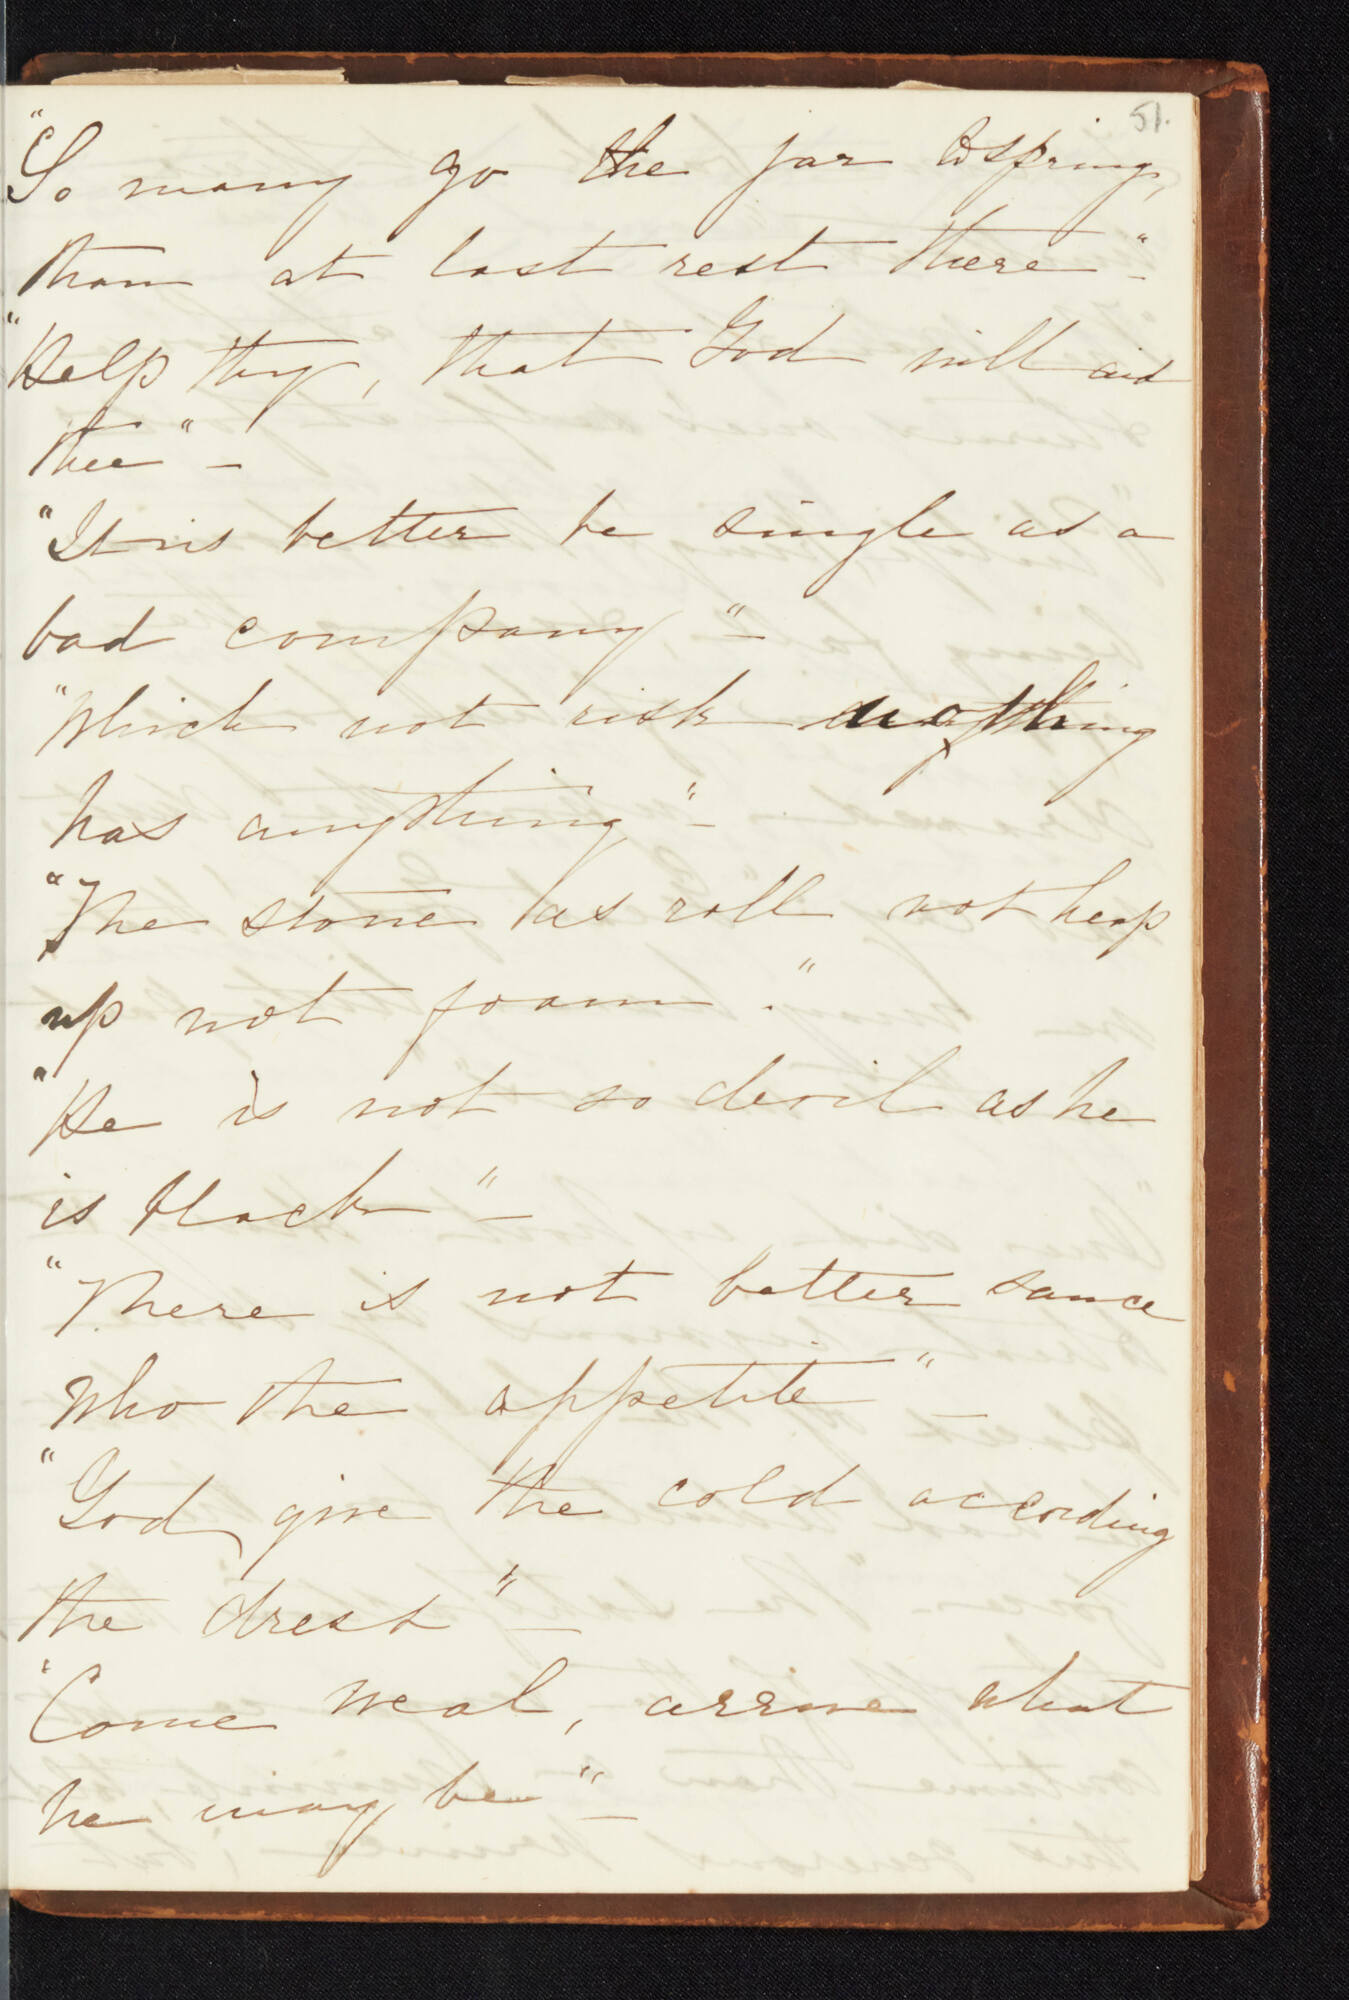 51.
"So many go the jar to spring,
than at last rest there" –
"Help thy, that God will aid
thee" –
"It is better be single as a
bad company" –
"Which not risk nothing
has anything" –
"The stone as roll not heap
up not foam."
"He is not so devil as he
is black" –
"There is not better sauce
who the appetite" –
"God give the cold according
the drest" –
"Come weal, arrive what
he may be" –